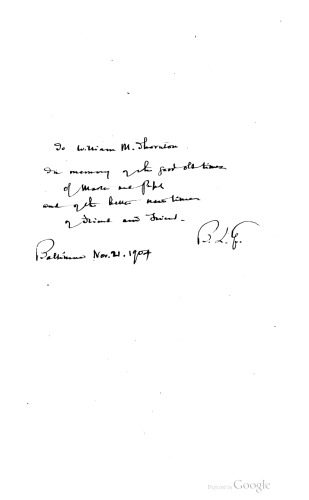 To William M. Thornton
In memory of the good old times
of Master and Pupil
and of the better new times
of Friend and Friend.
B. L. G.
Baltimore Nov. 21, 1904
Digitized by Google